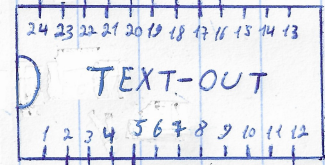 24 23 22 21 20 19 18 17 16 15 14 13
TEXT-OUT
1 2 3 4 5 6 7 8 9 10 11 12